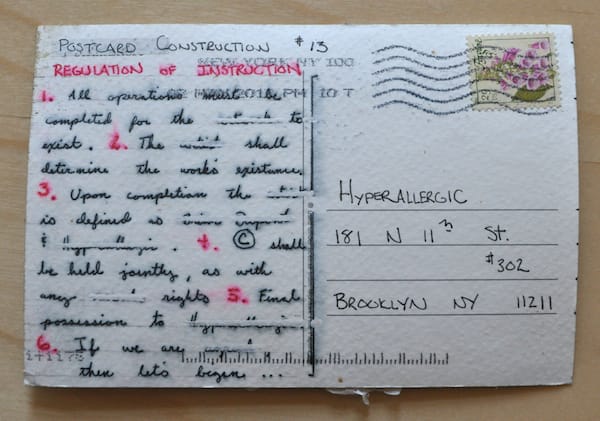 POSTCARD CONSTRUCTION #13
NEW YORK NY 100
REGULATION OF INSTRUCTION
2010 PM 10 T
1. All operations must be
completed for the to
exist. 2. The shall
determine the work's existance.
3. Upon completion the
is defined as
& "Hyperallergic". 4. © shall
be held jointly, as with
any rights 5. Final
possession to "Hyperallergic"
6. If we are
then let's begin ...
HYPERALLERGIC
181 N 11th ST.
#302
BROOKLYN NY 11211